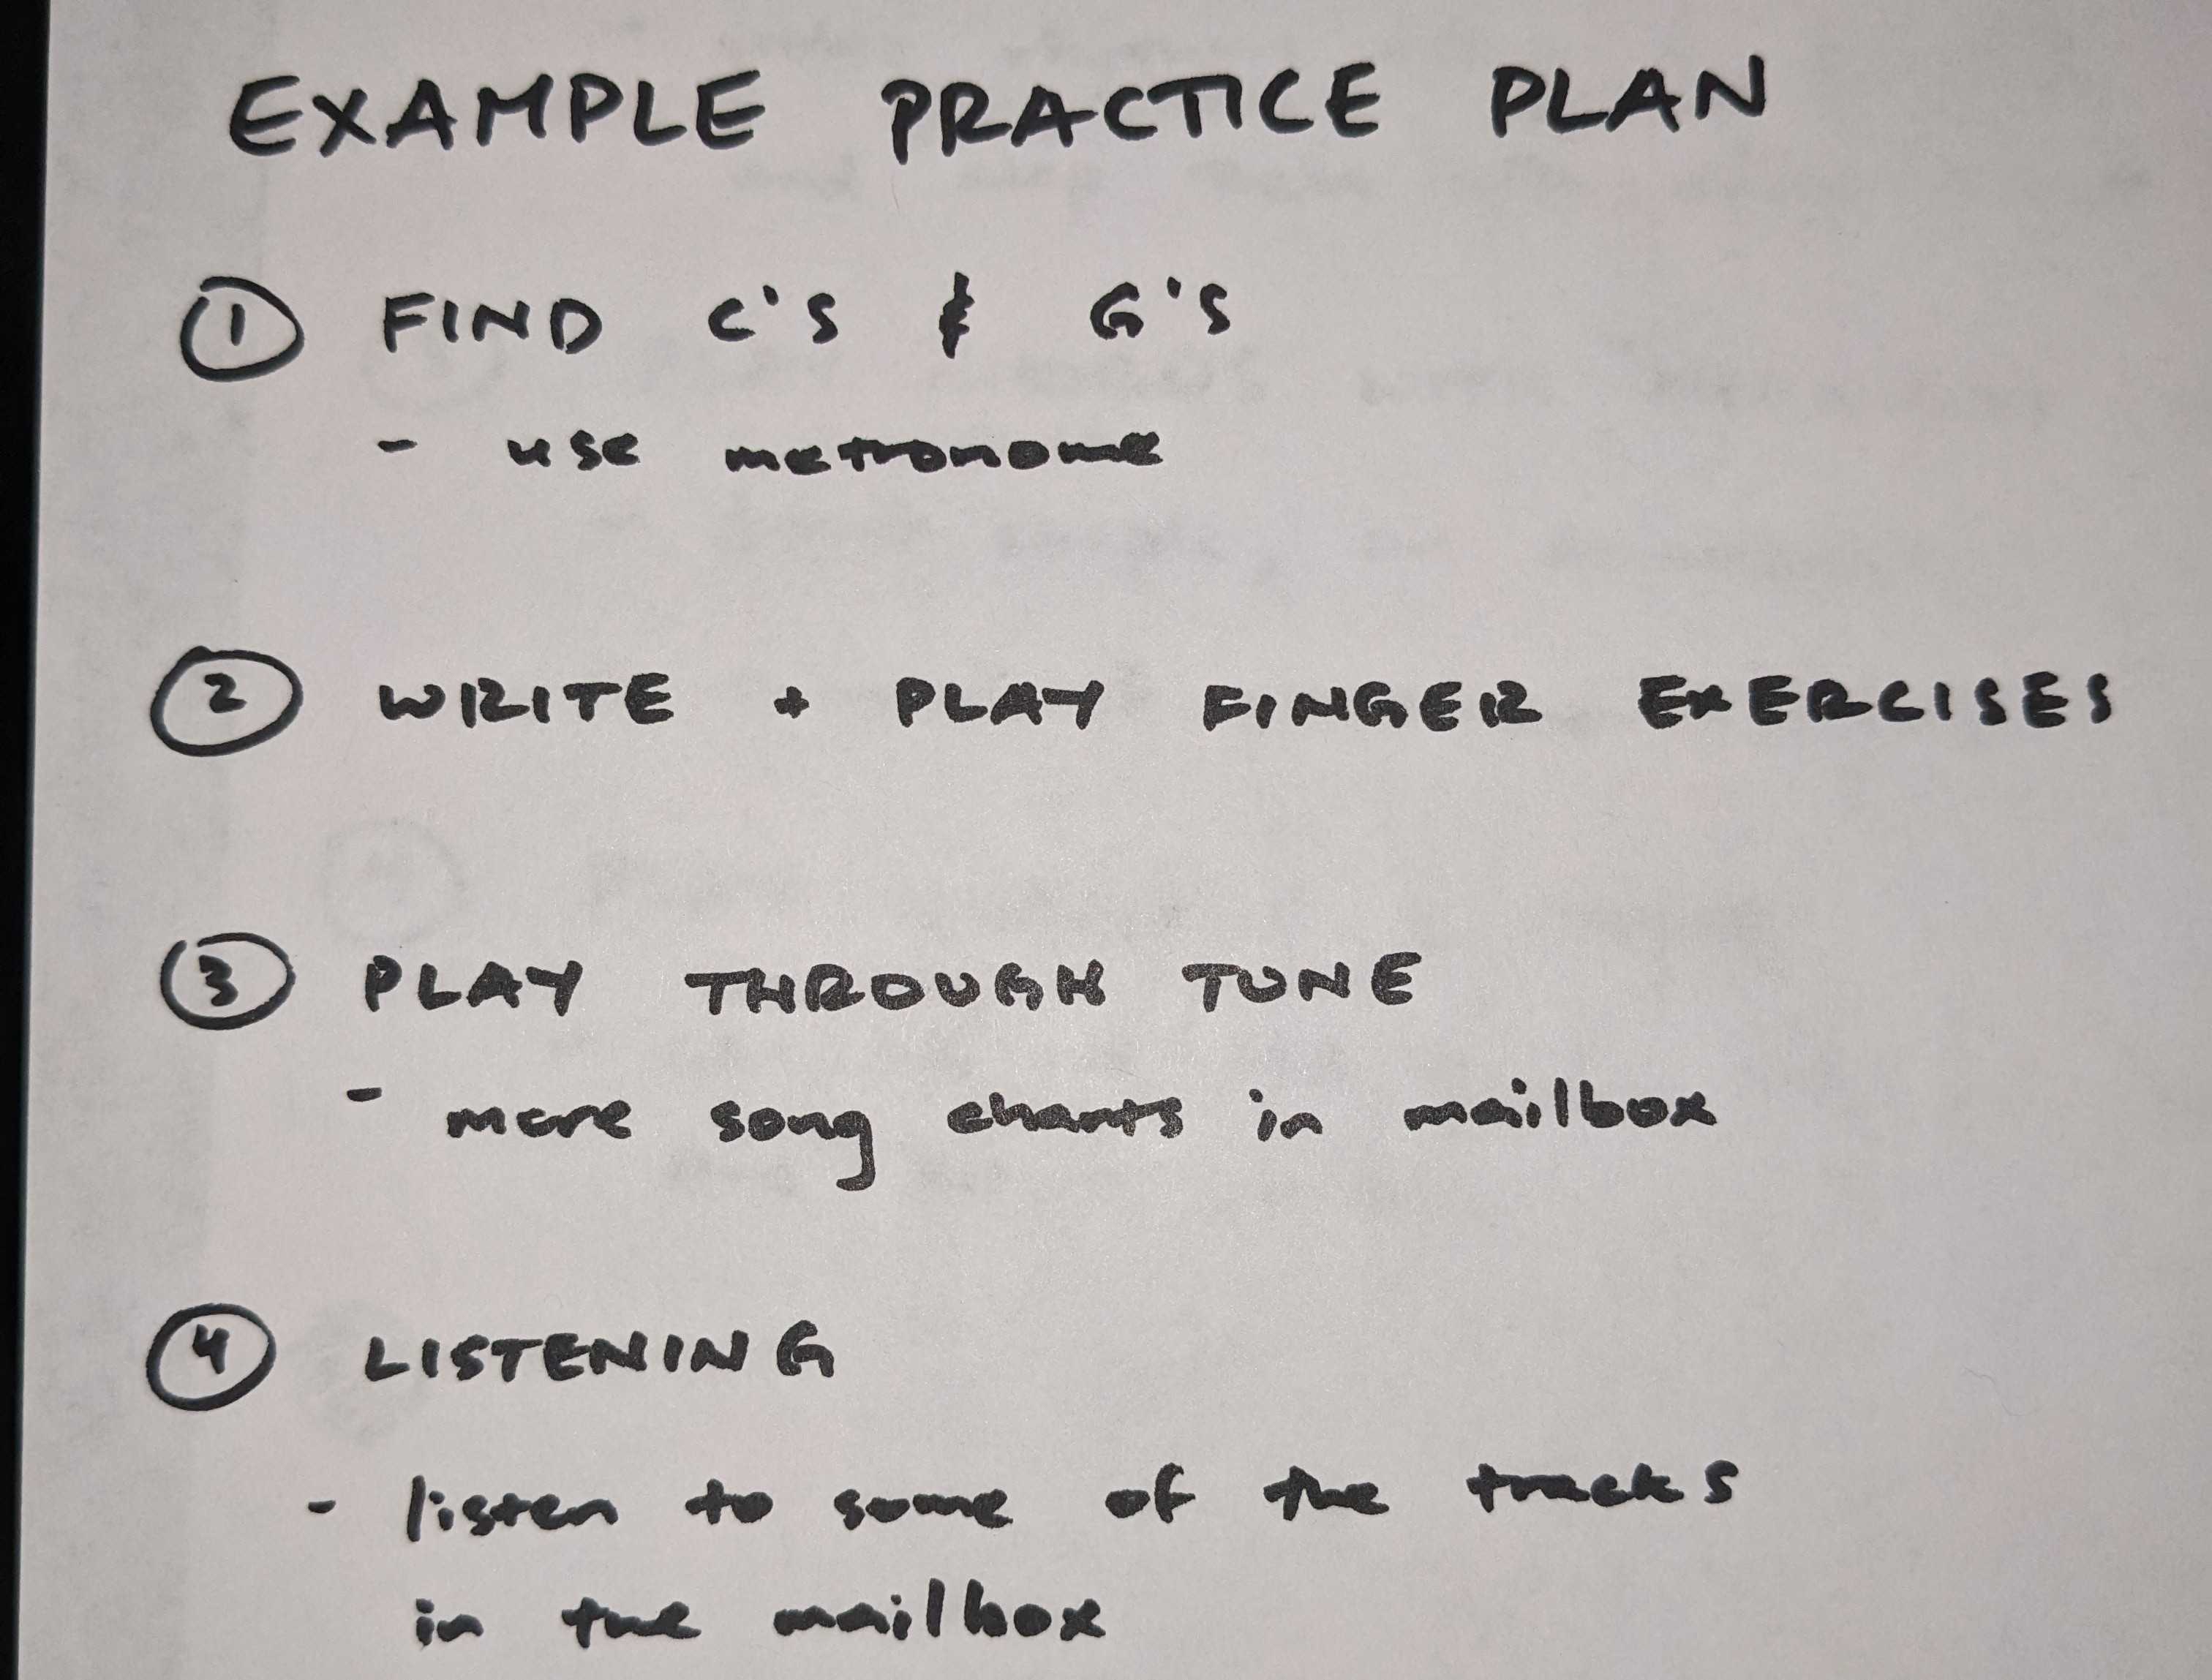 EXAMPLE PRACTICE PLAN
1 FIND C'S & G'S
- use metronome
2 WRITE + PLAY FINGER EXERCISES
3 PLAY THROUGH TUNE
- more song charts in mailbox
4 LISTENING
- listen to some of the tracks
in the mailbox